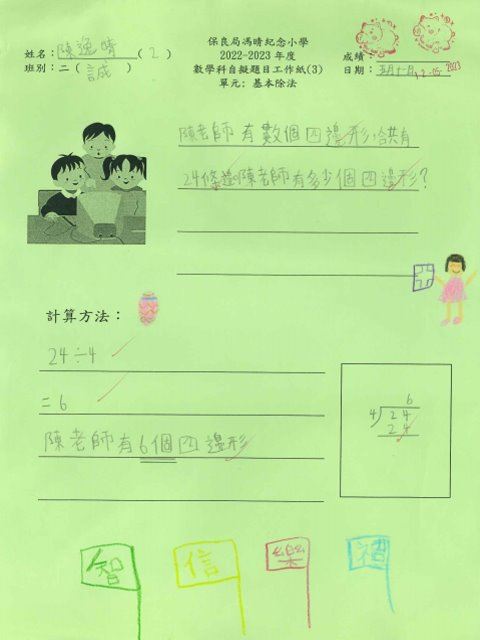 保良局馮晴紀念小學
姓名：陳逸晴（2）
2022-2023 年度
成績：
班別：二（誠）
數學科自擬題目工作紙(3)
日期：五月十一日 12-05-2023
單元：基本除法
陳老師有數個四邊形，合共有
24條邊，陳老師有多少個四邊形？
計算方法：
24÷4
= 6
陳老師有6個四邊形
6
4 24
24
智 信 樂 禮